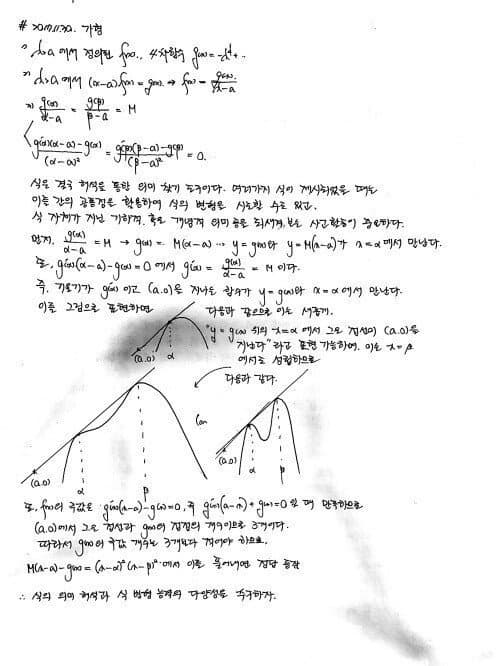 # 2017.11.30. 가형
1) x>a 에서 정의된 f(x).. 4차함수 g(x) = -x⁴+..
2) x>a 에서 (x-a)f(x)=g(x). → f(x) = g(x)/(x-a)
3) g(α)/(α-a) = g(β)/(β-a) = M
(g'(α)(α-a)-g(α))/(α-a)² = (g'(β)(β-a)-g(β))/(β-a)² = 0.
식은 결국 해석을 통한 의미 찾기 도구이다. 여러가지 식이 제시되었을 때는
이들 간의 공통점을 활용하여 식의 변형을 시도할 수도 있고.
식 자체가 지닌 기하적, 혹은 개념적 의미 등을 되새겨보는 사고활동이 중요하다.
먼저, g(α)/(α-a) = M → g(α) = M(α-a) ... y = g(x)와 y = M(x-a)가 x=α에서 만난다.
또, g'(α)(α-a)-g(α)=0 에서 g'(α) = g(α)/(α-a) = M 이다.
즉, 기울기가 g'(α) 이고 (a,0)을 지나는 함수가 y = g(x)와 x=α에서 만난다.
이를 그림으로 표현하면
다음과 같으므로 이는
"y = g(x) 위의 x=α 에서 그은 접선이 (a,0)을
지난다" 라고 표현 가능하며, 이는 x=β
에서도 성립하므로
(a,0)
α
다음과 같다.
(a,0)
α
β
(or
(a,0)
α
β
또, f(x)의 극값은 g'(x)(x-a)-g(x)=0, 즉 g'(x)(a-x)+g(x)=0 일 때 만족하므로
(a,0)에서 그은 접선과 g(x)의 접점의 개수이므로 3개이다.
따라서 g(x)의 극값 개수는 3개보다 적어야 하므로.
M(x-a)-g(x) = (x-α)²(x-β)² 에서 이를 풀어내면 정답 등장
∴ 식의 의미 해석과 식 변형 능력의 다양성을 추구하자.